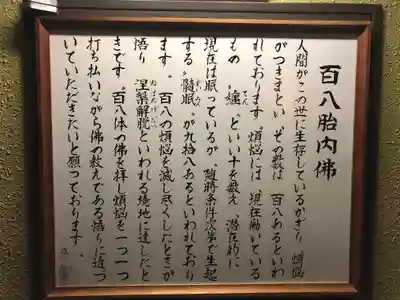 百八胎内佛
人間がこの世に生存しているかぎり、煩悩
がつきまとい、その数は、百八あるといわ
れております。煩悩には、現在働いている
もの〝纏〟といい十を数え、潜在的に
てん
現在は眠っているが、随時条件次第で生起
する〝髄眠〟が九拾八あるといわれており
ずいめん
ます。百八の煩悩を滅し尽くしたときが
悟り、涅槃解脱といわれる境地に達したと
ねはんげだつ
きです。百八体の佛を拝し煩悩を一つ一つ
打ち払いながら佛の教えである悟りに近づ
いていただきたいと願っております。